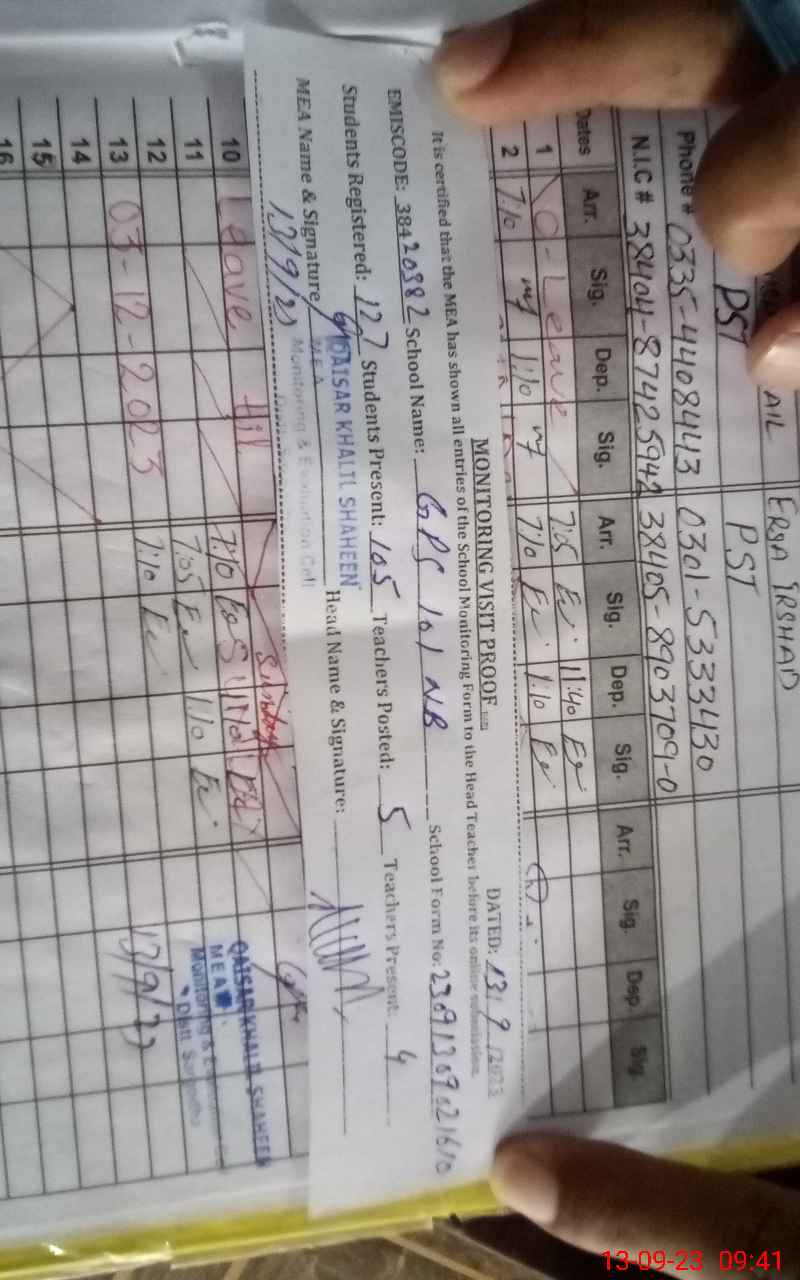 AIL
ERSA IRSHAD
PST
PST
Phone # 0335-4408443
0301-5333430
N.I.C # 38404-8742594
38405-8903709-0
Dates Arr. Sig. Dep. Sig. Arr. Sig. Dep. Sig. Arr. Sig. Dep. Sig.
1 Leave 7:05 11:40
2 7:10 1:10 7:10 1:10
MONITORING VISIT PROOF
DATED: 13/9/2023
It is certified that the MEA has shown all entries of the School Monitoring Form to the Head Teacher before its online submission.
EMISCODE: 38420982 School Name: GPS 101 NB School Form No: 23091309021610
Students Registered: 127 Students Present: 105 Teachers Posted: 5 Teachers Present: 4
MEA Name & Signature Head Name & Signature:
QAISAR KHALIL SHAHEEN
MEA
Monitoring & Evaluation Cell
13/9/23
Sunday
10 Leave til 7:10
11 7:05 1:10
12 7:10
13 03-12-2023
14
15
16
QAISAR KHALIL SHAHEEN
MEA
Monitoring &
Distt. Sargodha
13/9/23
13-09-23 09:41